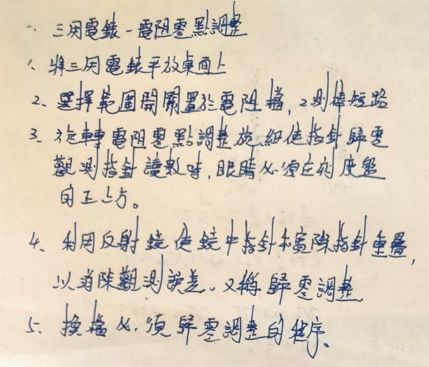 一、三用電錶-電阻零點調整
1、將三用電錶平放桌面上
2、選擇範圍開關置於電阻檔,2測棒短路
3、旋轉電阻零點調整旋鈕使指針歸零
觀測指針讀數時,眼睛必須在刻度盤
的正上方。
4、利用反射鏡使鏡中指針和實際指針重疊,
以消除觀測誤差。又稱歸零調整
5、換檔必須歸零調整的程序、